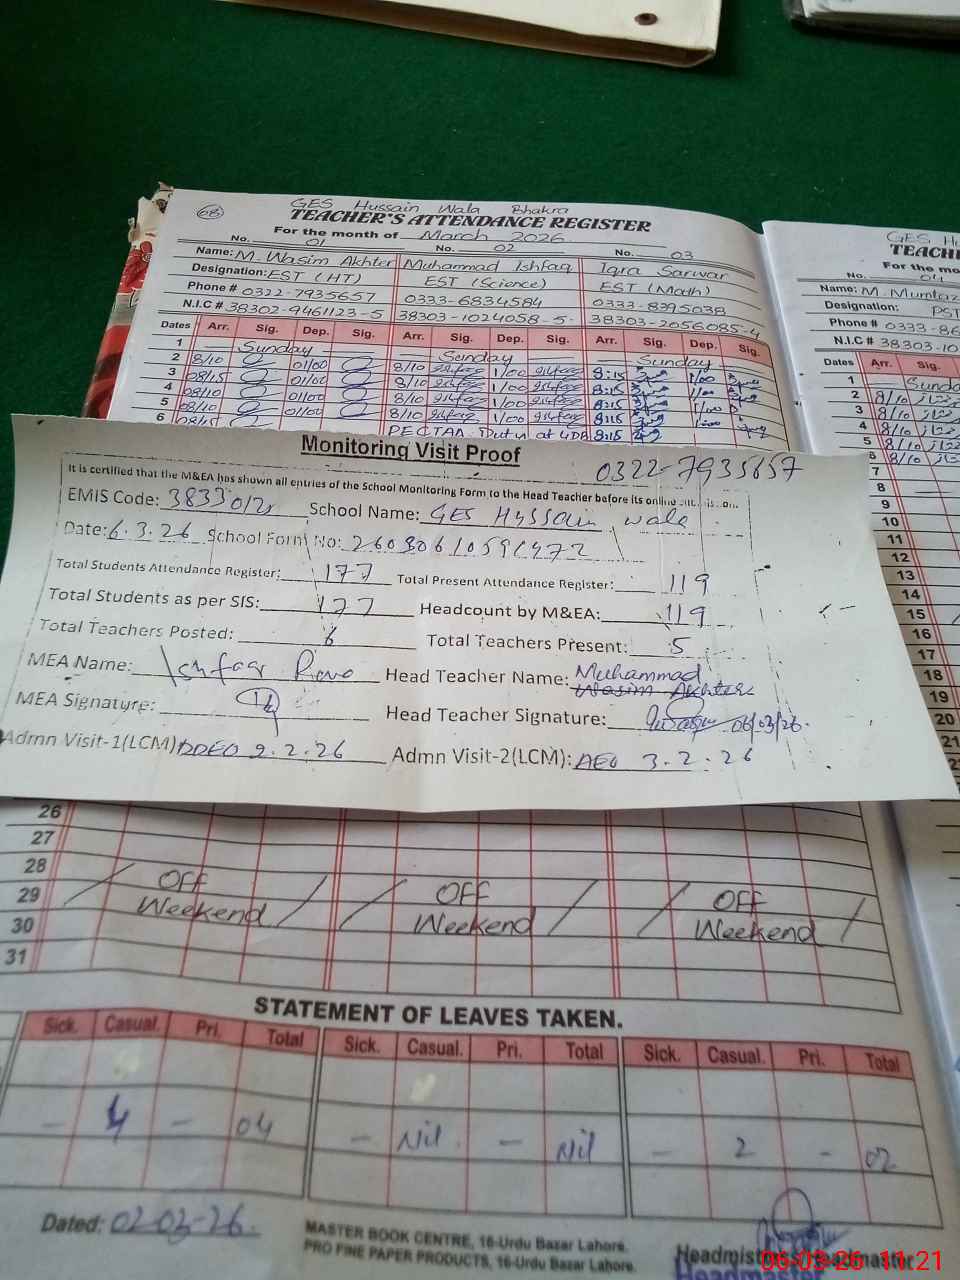 GES Hussain Wala Bhakra
08 TEACHER'S ATTENDANCE REGISTER
For the month of March 2026
No. 01 No. 02 No. 03
Name: M. Wasim Akhter Muhammad Ishfaq Iqra Sarwar
Designation: EST (HT) EST (Science) EST (Math)
Phone # 0322-7935657 0333-6834584 0333-8395038
N.I.C # 38302-9461123-5 38303-1024058-5 38303-2056085-4
Dates Arr. Sig. Dep. Sig. Arr. Sig. Dep. Sig. Arr. Sig. Dep. Sig.
1 Sunday Sunday Sunday
2 8/10 01/00 8/10 1/00 8:15 1/00
3 08/15 01/00 8/10 1/00 8:15 1/00
4 08/10 01/00 8/10 1/00 8:15 1/00
5 08/10 01/00 8/10 1/00 8:15 1:00
6 08/15 Duty at 8:15
GES H
TEACH
For the mo
No. 04
Name: M. Mumtaz
Designation: PST
Phone # 0333-86
N.I.C # 38303-10
Dates Arr. Sig.
1 Sunda
2 8/10
3 8/10
4 8/10
5 8/10
6 8/10
7
8
9
10
11
12
13
14
15
16
17
18
19
20
21
Monitoring Visit Proof
0322-7935657
It is certified that the M&EA has shown all entries of the School Monitoring Form to the Head Teacher before its online
EMIS Code: School Name: GES Hussain wala
Date: 6.3.26 School Form No:
Total Students Attendance Register: 177 Total Present Attendance Register: 119
Total Students as per SIS: 177 Headcount by M&EA: 119
Total Teachers Posted: 6 Total Teachers Present: 5
MEA Name: Head Teacher Name: Muhammad Wasim Akhter
MEA Signature: Head Teacher Signature: 06/03/26
Admn Visit-1(LCM) DDEO 9.2.26 Admn Visit-2(LCM): AEO 3.2.26
26
27
28
29 OFF OFF OFF
30 Weekend Weekend Weekend
31
STATEMENT OF LEAVES TAKEN.
Sick. Casual. Pri. Total Sick. Casual. Pri. Total Sick. Casual. Pri. Total
- 4 - 04 - Nil - Nil - 2 - 02
Dated: 02-03-26
MASTER BOOK CENTRE, 16-Urdu Bazar Lahore.
PRO FINE PAPER PRODUCTS, 16-Urdu Bazar Lahore.
Headmistress/Headmaster
Headmaster
06-03-26 11:21